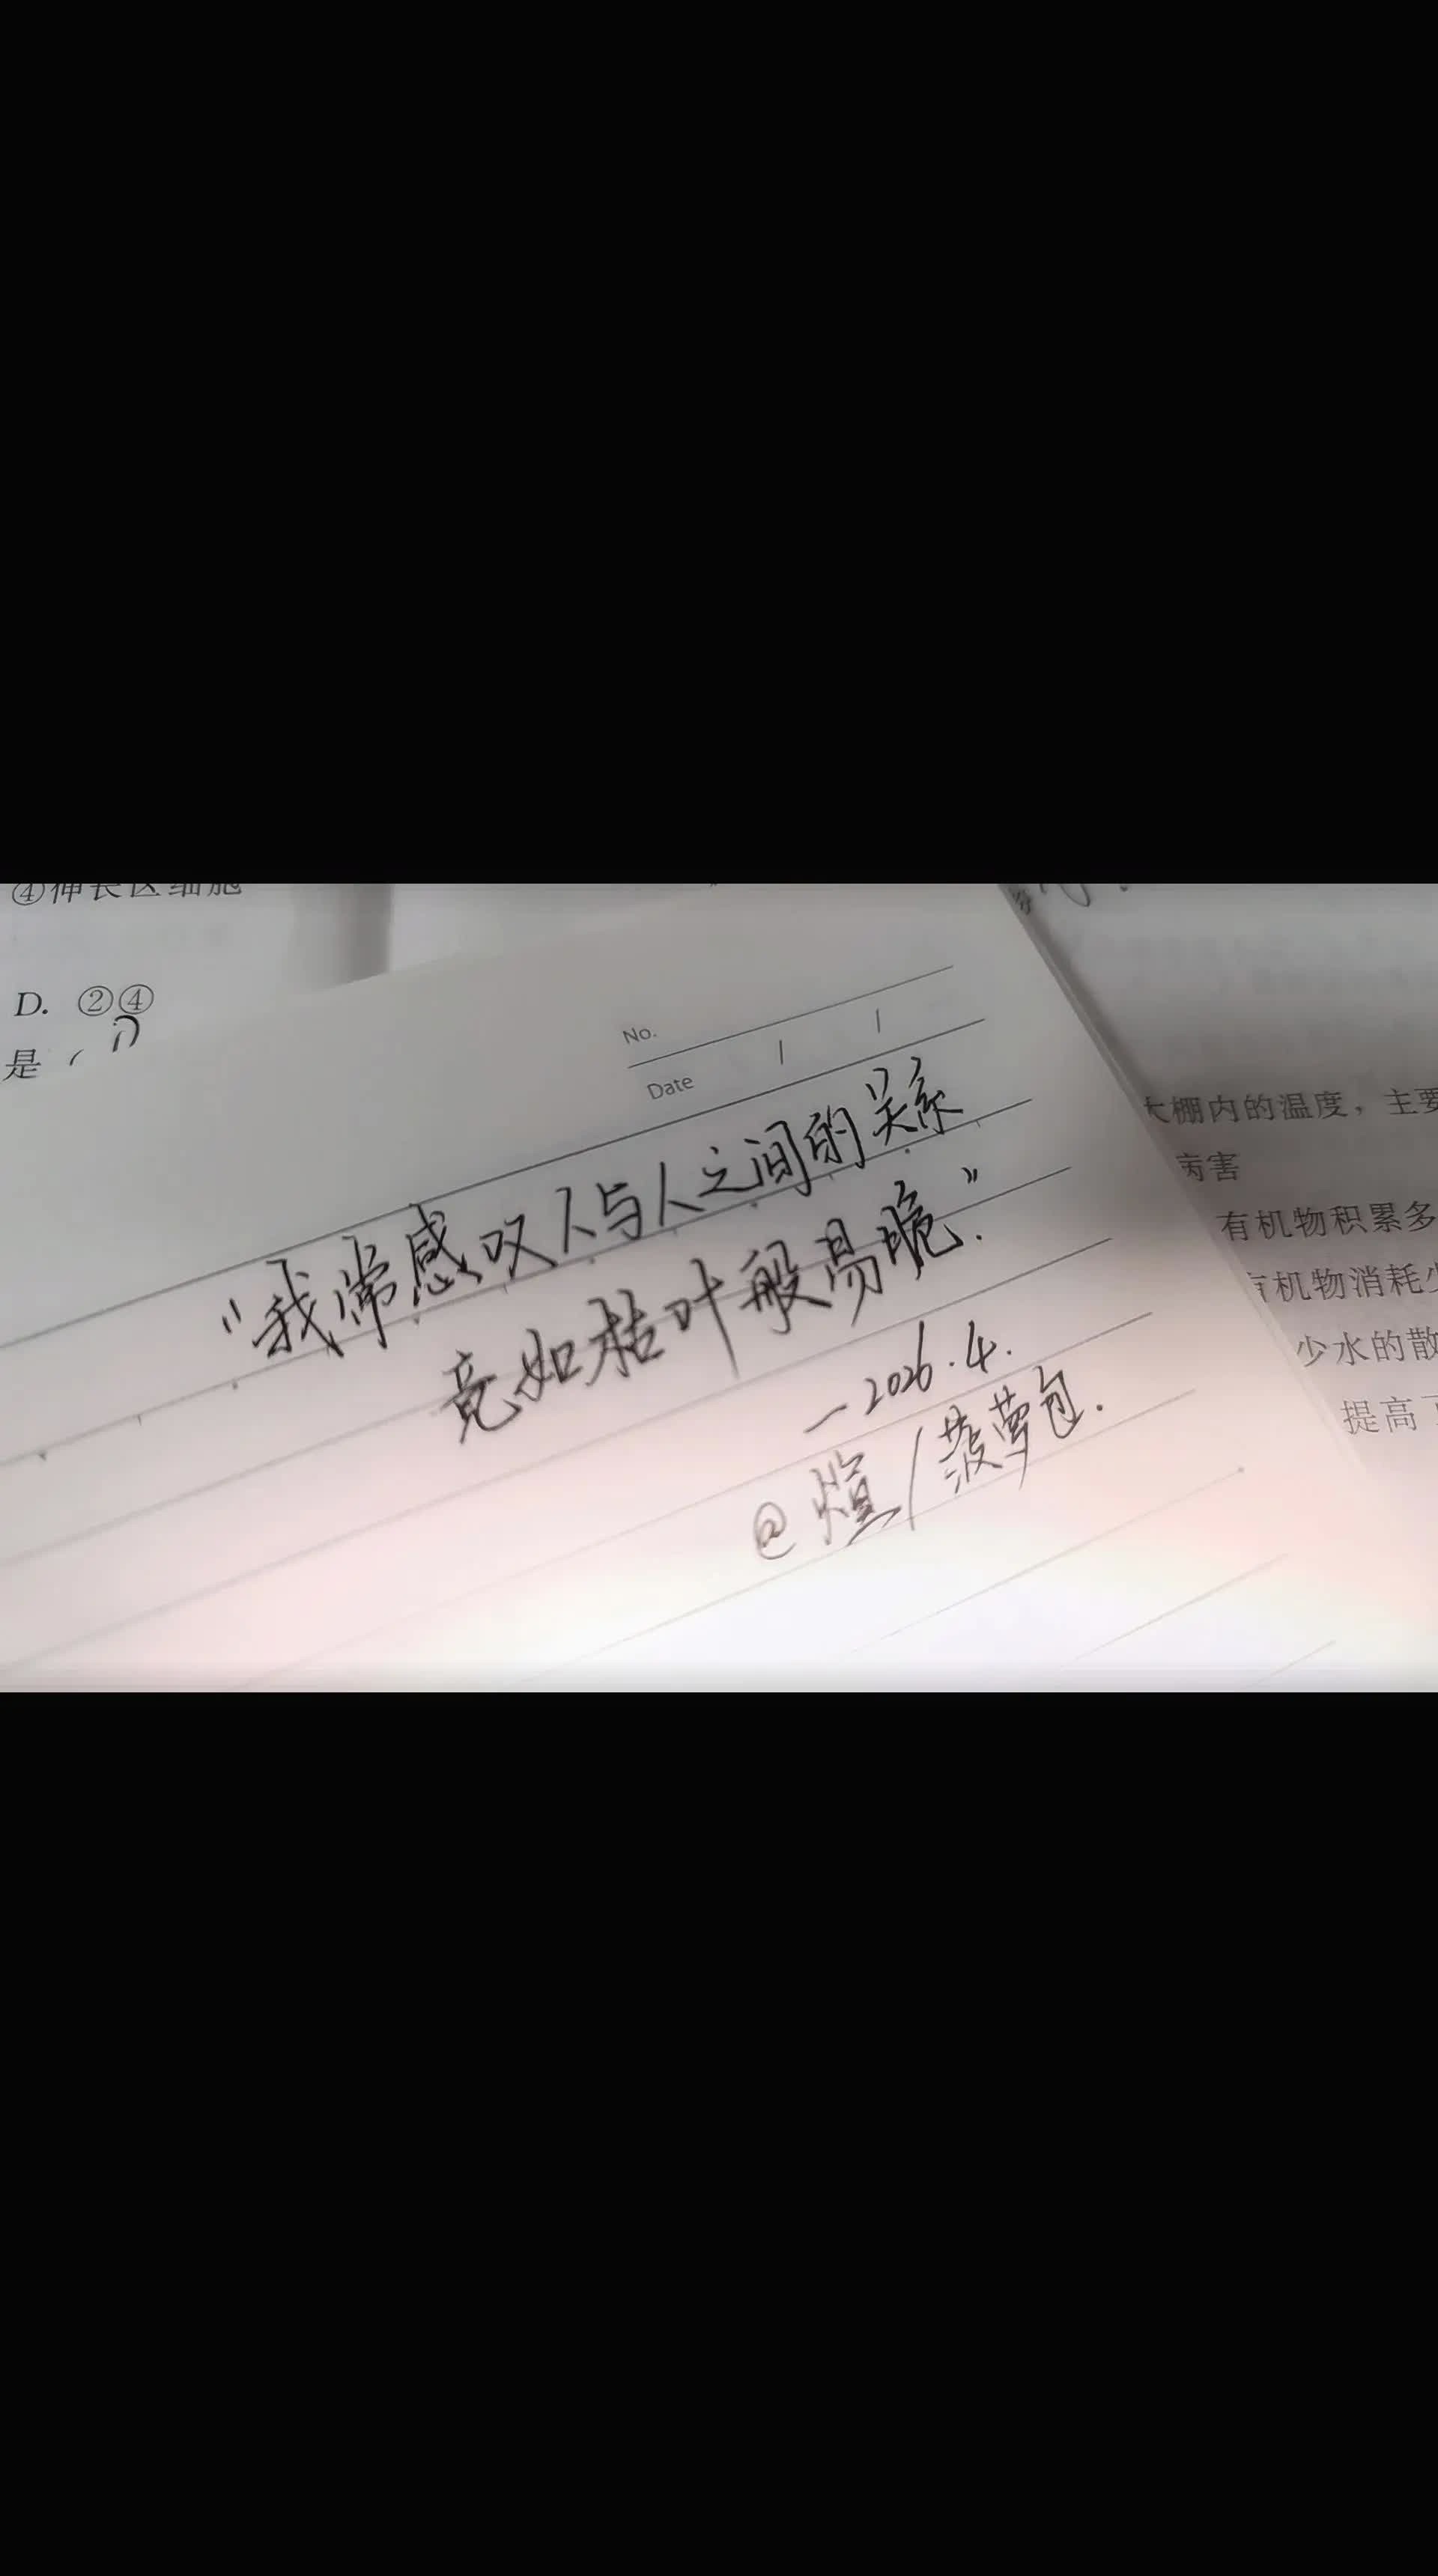 ④伸长区细胞
D. ②④
是（
No.
Date / /
"我常感叹人与人之间的关系
竟如枯叶般易脆."
—2026.4.
@煊/菠萝包.
大棚内的温度，主要
病害
有机物积累多
有机物消耗少
少水的散
提高